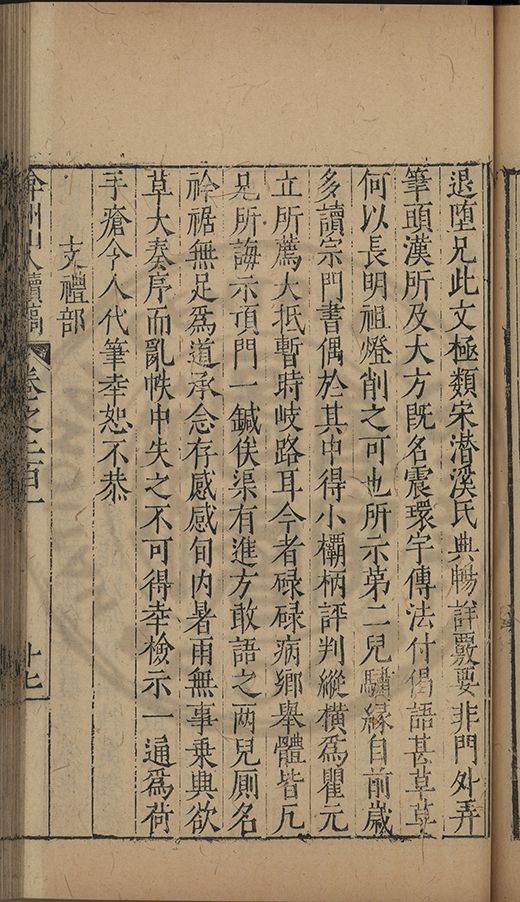 退墮兄此文極類宋潜溪氏典暢詳覈要非門外弄
筆頭漢所及大方既名震環宇傳法付偈語甚草草
何以長明祖燈削之可也所示第二兒驌緣自前歲
多讀宗門書偶於其中得小欛柄評判縱橫爲瞿元
立所薦大抵暫時岐路耳今者碌碌病鄉舉體皆凡
兄所誨示項門一鍼俟渠有進方敢語之两兒厠名
衿裾無足爲道承念存感感旬内暑雨無事乗興欲
草大奏序而亂帙中失之不可得幸檢示一通爲荷
手瘡令人代筆幸恕不恭
文禮部
弇州山人續稿 卷之二百一 十七